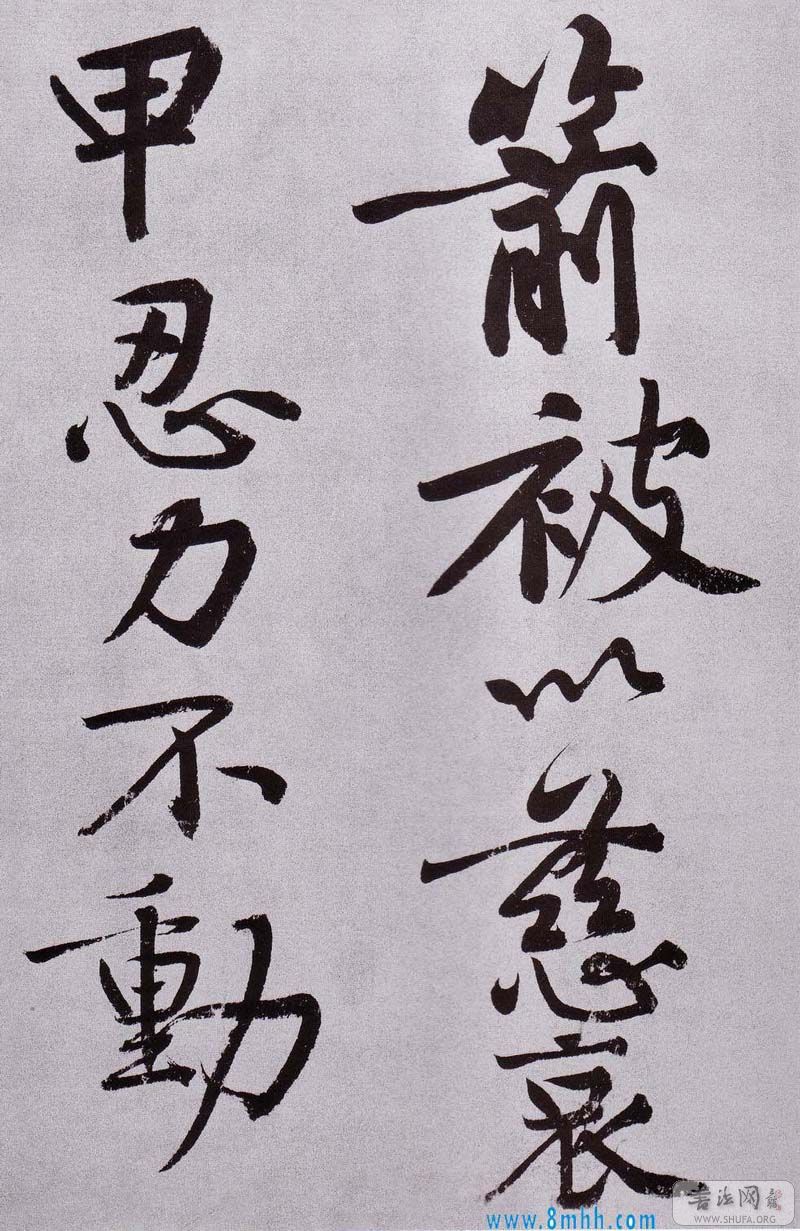 箭被以慈哀
甲忍力不動
书法网
WWW.SHUFA.ORG
www.8mhh.com